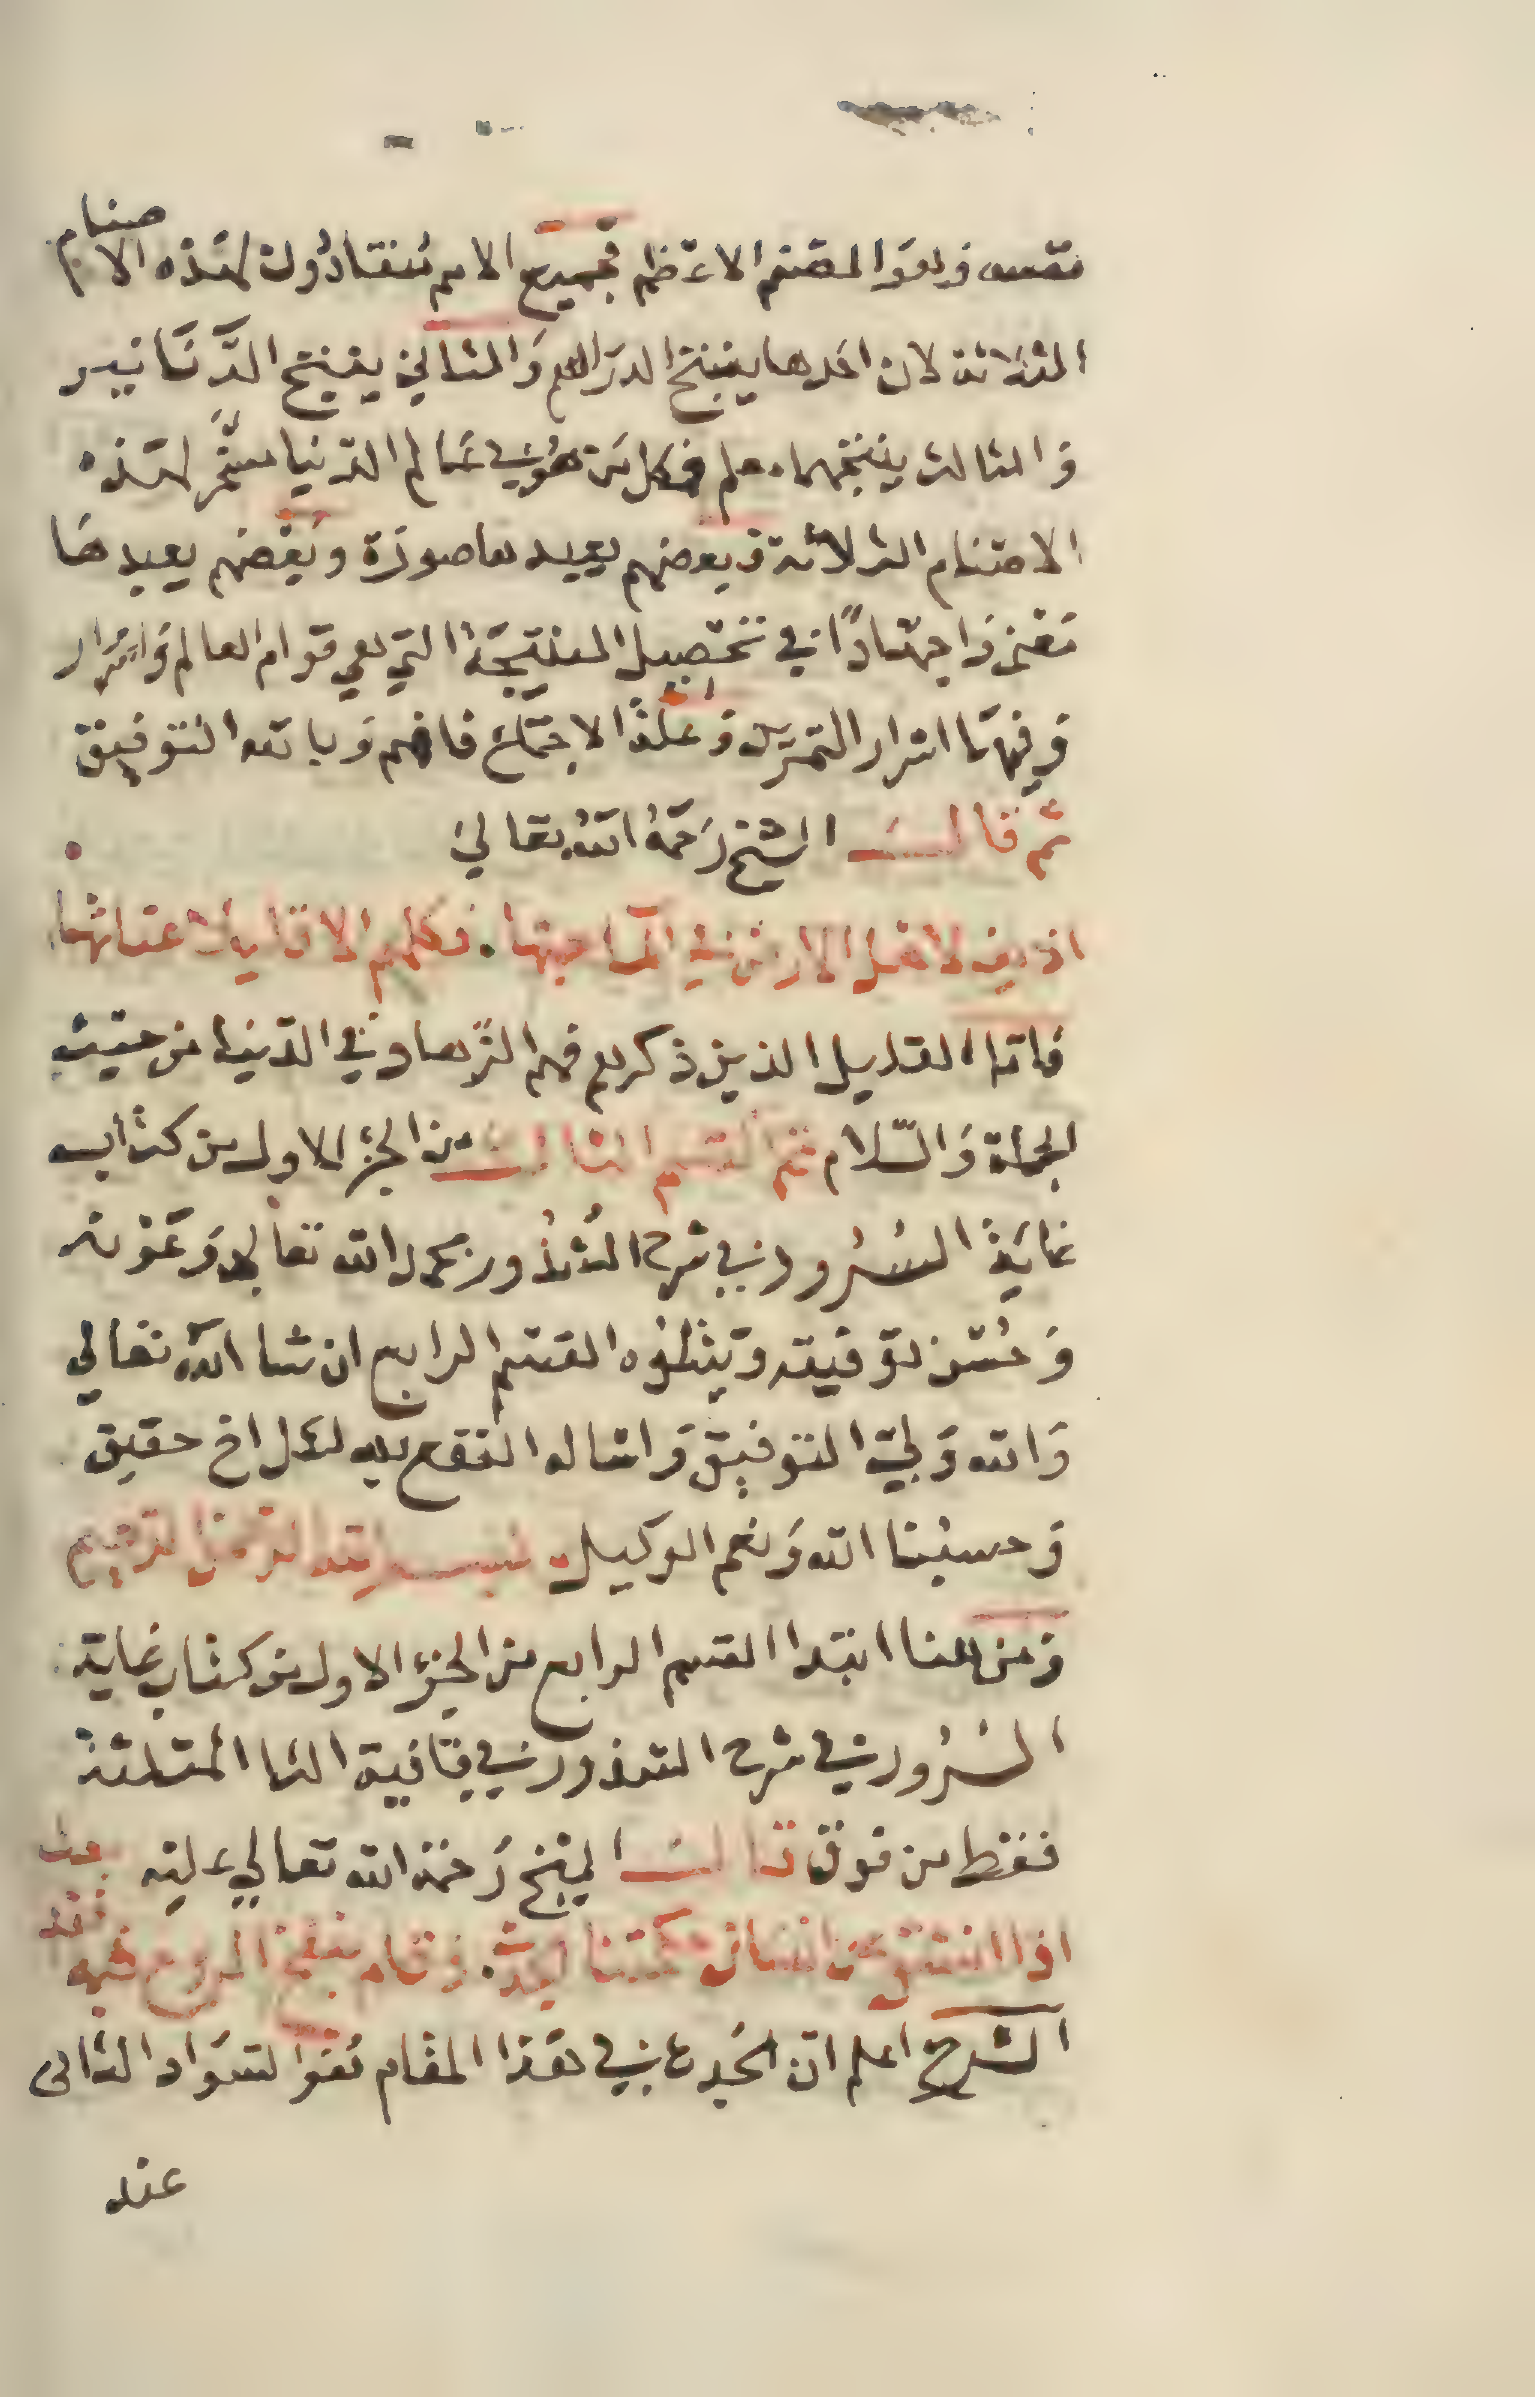 نفسه وهو الصنم الاعظم فجميع الامم منقادون لهذه الاصنام
الثلاثة لان احدها ينتج الدراهم والثاني ينتج الدنانير
والثالث ينتجهما معا فكل من هو في عالم الدنيا مسخر لهذه
الاصنام الثلاثة فبعضهم يعبدها صورة وبعضهم يعبدها
معنى واجتهادا في تحصيل النتيجة التي هي قوام العالم
وفيها اسرار وعلة الاجتماع فافهم وبالله التوفيق
ثم قال الشيخ رحمه الله تعالى
لاهل الارض في
فاما القليل الذين ذكرهم فهم الزهاد في الدنيا من حيث
الجملة والسلام تم القسم الثالث من الجزء الاول من كتاب
غاية السرور في شرح الشذور بحمد الله تعالى وعونه
وحسن توفيقه ويتلوه القسم الرابع ان شا الله تعالى
والله ولي التوفيق واساله النفع به لكل اخ حقيق
وحسبنا الله ونعم الوكيل بسم الله الرحمن الرحيم
ومن هنا ابتدا القسم الرابع من الجزء الاول من كتاب غاية
السرور في شرح الشذور في قافية الثا المثلثة
فقط من فوق قال الشيخ رحمة الله تعالى عليه
اذا انشق عن انسان حكمتنا الجدث وقام بنفخ الروح فيه
الشرح اعلم ان الجدث في هذا المقام هو السواد الثاني
عند